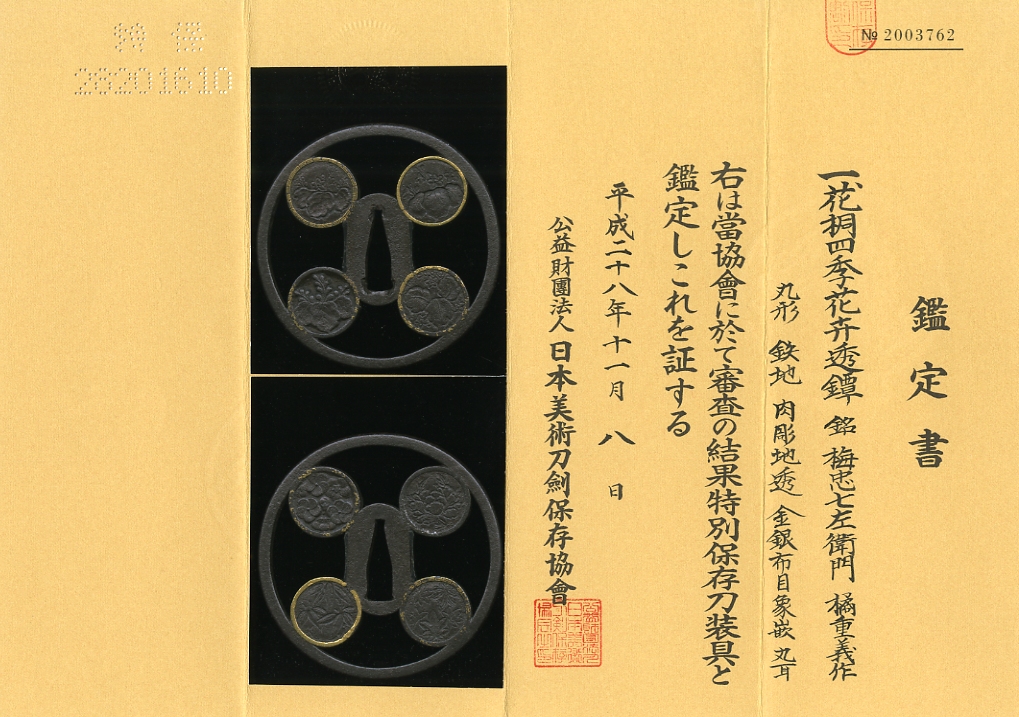 № 2003762
鑑定書
一、花桐四季花卉透鐔 銘 梅忠七左衛門 橘重義作
丸形 鉄地 肉彫地透 金銀布目象嵌 丸耳
右は當協會に於て審査の結果特別保存刀装具と
鑑定しこれを証する
平成二十八年十一月八日
公益財團法人日本美術刀劍保存協會
特保
28201610